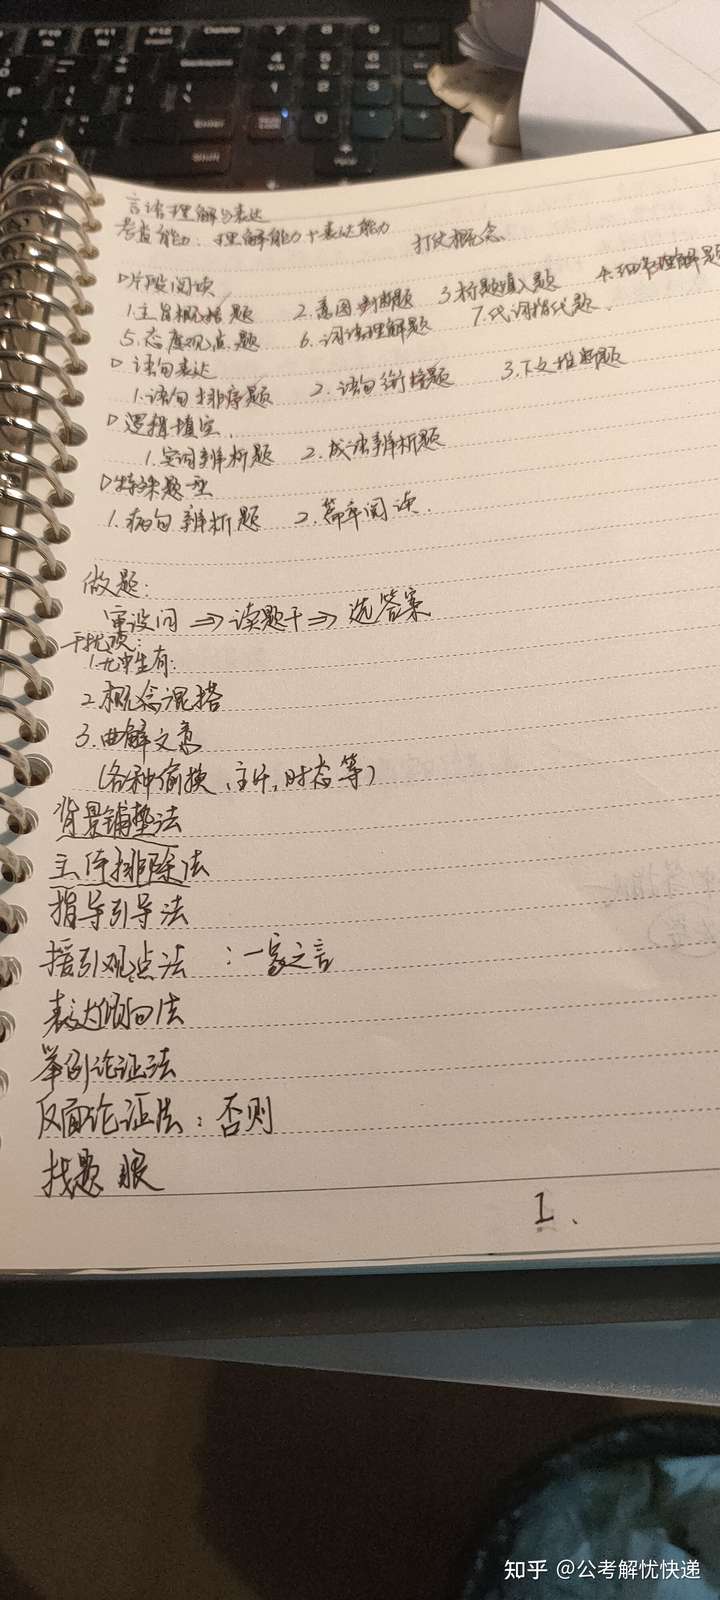 言语理解与表达
考查能力：理解能力+表达能力 打比概念
▷片段阅读
1.主旨概括题 2.意图判断题 3.标题填入题 4.细节理解题
5.态度观点题 6.词语理解题 7.代词指代题.
▷语句表达
1.语句排序题 2.语句衔接题 3.下文推断题
▷逻辑填空.
1.实词辨析题 2.成语辨析题
▷特殊题型
1.病句辨析题 2.篇章阅读.
做题:
审设问⇒读题干⇒选答案
干扰项:
1.无中生有:
2.概念混搭
3.曲解文意
(各种偷换、主体,时态等)
背景铺垫法
主体排除法
指导引导法
援引观点法：一家之言
表达倾向法
举例论证法
反面论证法：否则
找题眼
1、
知乎 @公考解忧快递
Delete
Enter
Shift